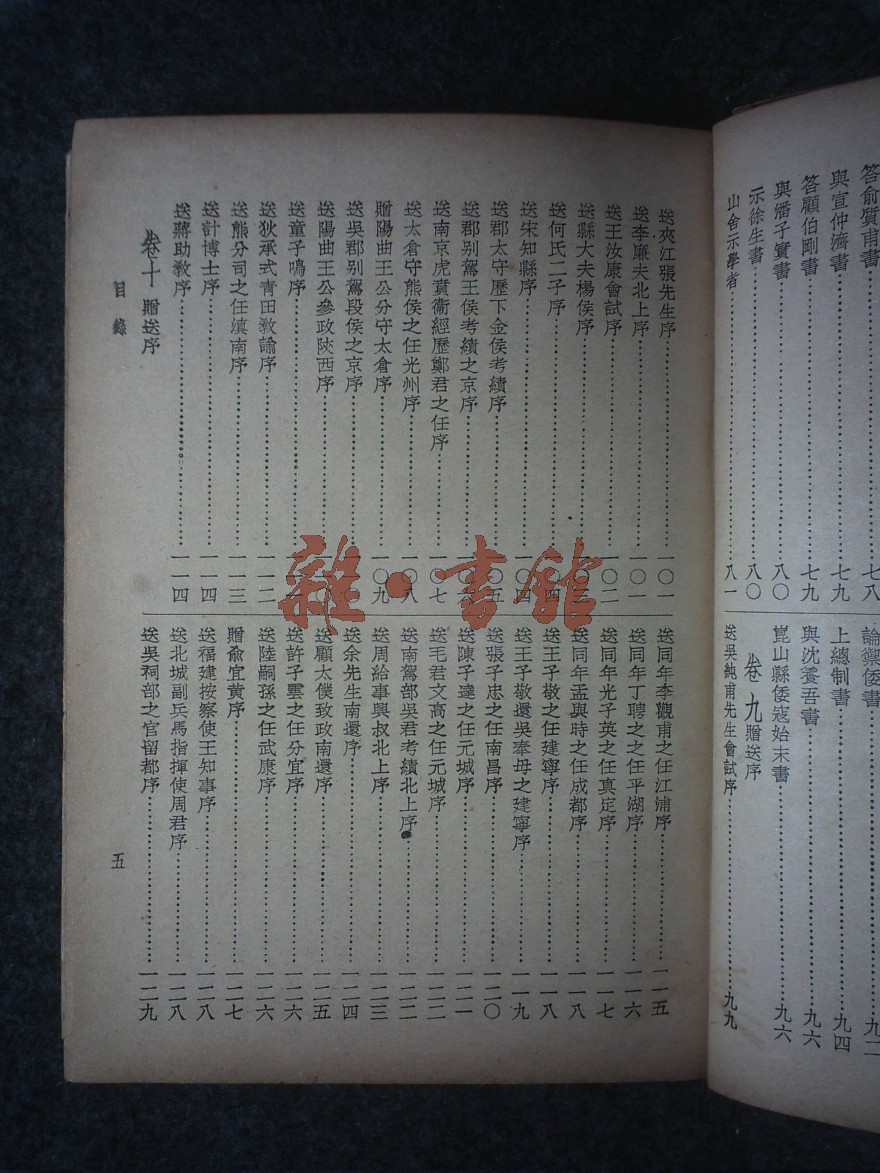 答俞質甫書……七八
與宣仲濟書……七九
答顧伯剛書……七九
與潘子實書……八〇
示徐生書……八〇
山舍示學者……八一
論禦倭書……九二
上總制書……九四
與沈養吾書……九六
崑山縣倭寇始末書……九六
卷九 贈送序
送吳純甫先生會試序……九九
送夾江張先生序……一〇一
送李廉夫北上序……一〇一
送王汝康會試序……一〇二
送縣大夫楊侯序……
送何氏二子序……
送宋知縣序……一〇四
送郡太守歷下金侯考績序……一〇五
送郡别駕王侯考績之京序……
南京虎賁衛經歷鄭君之任序……一〇七
送太倉守熊侯之任光州序……一〇八
贈陽曲王公分守太倉序……一〇九
送吳郡别駕段侯之京序……
送陽曲王公參政陝西序……
送童子鳴序……
送狄承式青田敎諭序……一一二
送熊分司之任滇南序……一一三
送計博士序……一一四
送蔣助敎序……一一四
卷十 贈送序
送同年李觀甫之任江浦序……一一五
送同年丁聘之之任平湖序……一一六
送同年光子英之任真定序……一一七
送同年孟與時之任成都序……一一八
送王子敬之任建寧序……一一八
送王子敬還吳奉母之建寧序……一一九
送張子忠之任南昌序……一二〇
送陳子達之任元城序……一二一
送毛君文高之任元城序……一二二
送南駕部吳君考績北上序……一二二
送周給事興叔北上序……一二三
送余先生南還序……一二四
送顧太僕致政南還序……一二五
送許子雲之任分宜序……一二六
送陸嗣孫之任武康序……一二六
贈俞宜黃序……一二七
送福建按察使王知事序……一二八
送北城副兵馬指揮使周君序……一二八
送吳祠部之官留都序……一二九
目錄
五
雜·書館